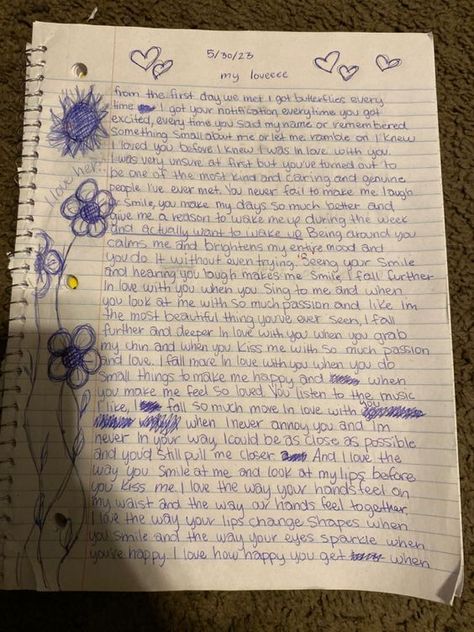 5/30/23
my loveeee
from the first day we met I got butterflies every
time I got your notification, every time you got
excited, every time you said my name or remembered
something small about me or let me ramble on I knew
I loved you before I knew I was in love with you.
I was very unsure at first but you've turned out to
be one of the most kind and caring and genuine
people I've ever met. You never fail to make me laugh
or smile, you make my days so much better and
give me a reason to wake me up during the week
and actually want to wake up Being around you
calms me and brightens my entire mood and
you do it without even trying. Seeing your smile
and hearing you laugh makes me smile, I fall further
in love with you when you sing to me and when
you look at me with so much passion and like im
the most beautiful thing you've ever seen, I fall
further and deeper in love with you when you grab
my chin and when you kiss me with so much passion
and love. I fall more in love with you when you do
small things to make me happy and when
you make me feel so loved you listen to the music
I like, I fall so much more in love with you
when I never annoy you and im
never in your way, I could be as close as possible
and you'd still pull me closer And I love the
way you smile at me and look at my lips before
you kiss me I love the way your hands feel on
my waist and the way our hands feel together
I love the way your lips change shapes when
you smile and the way your eyes sparkle when
you're happy. I love how happy you get when
I love her